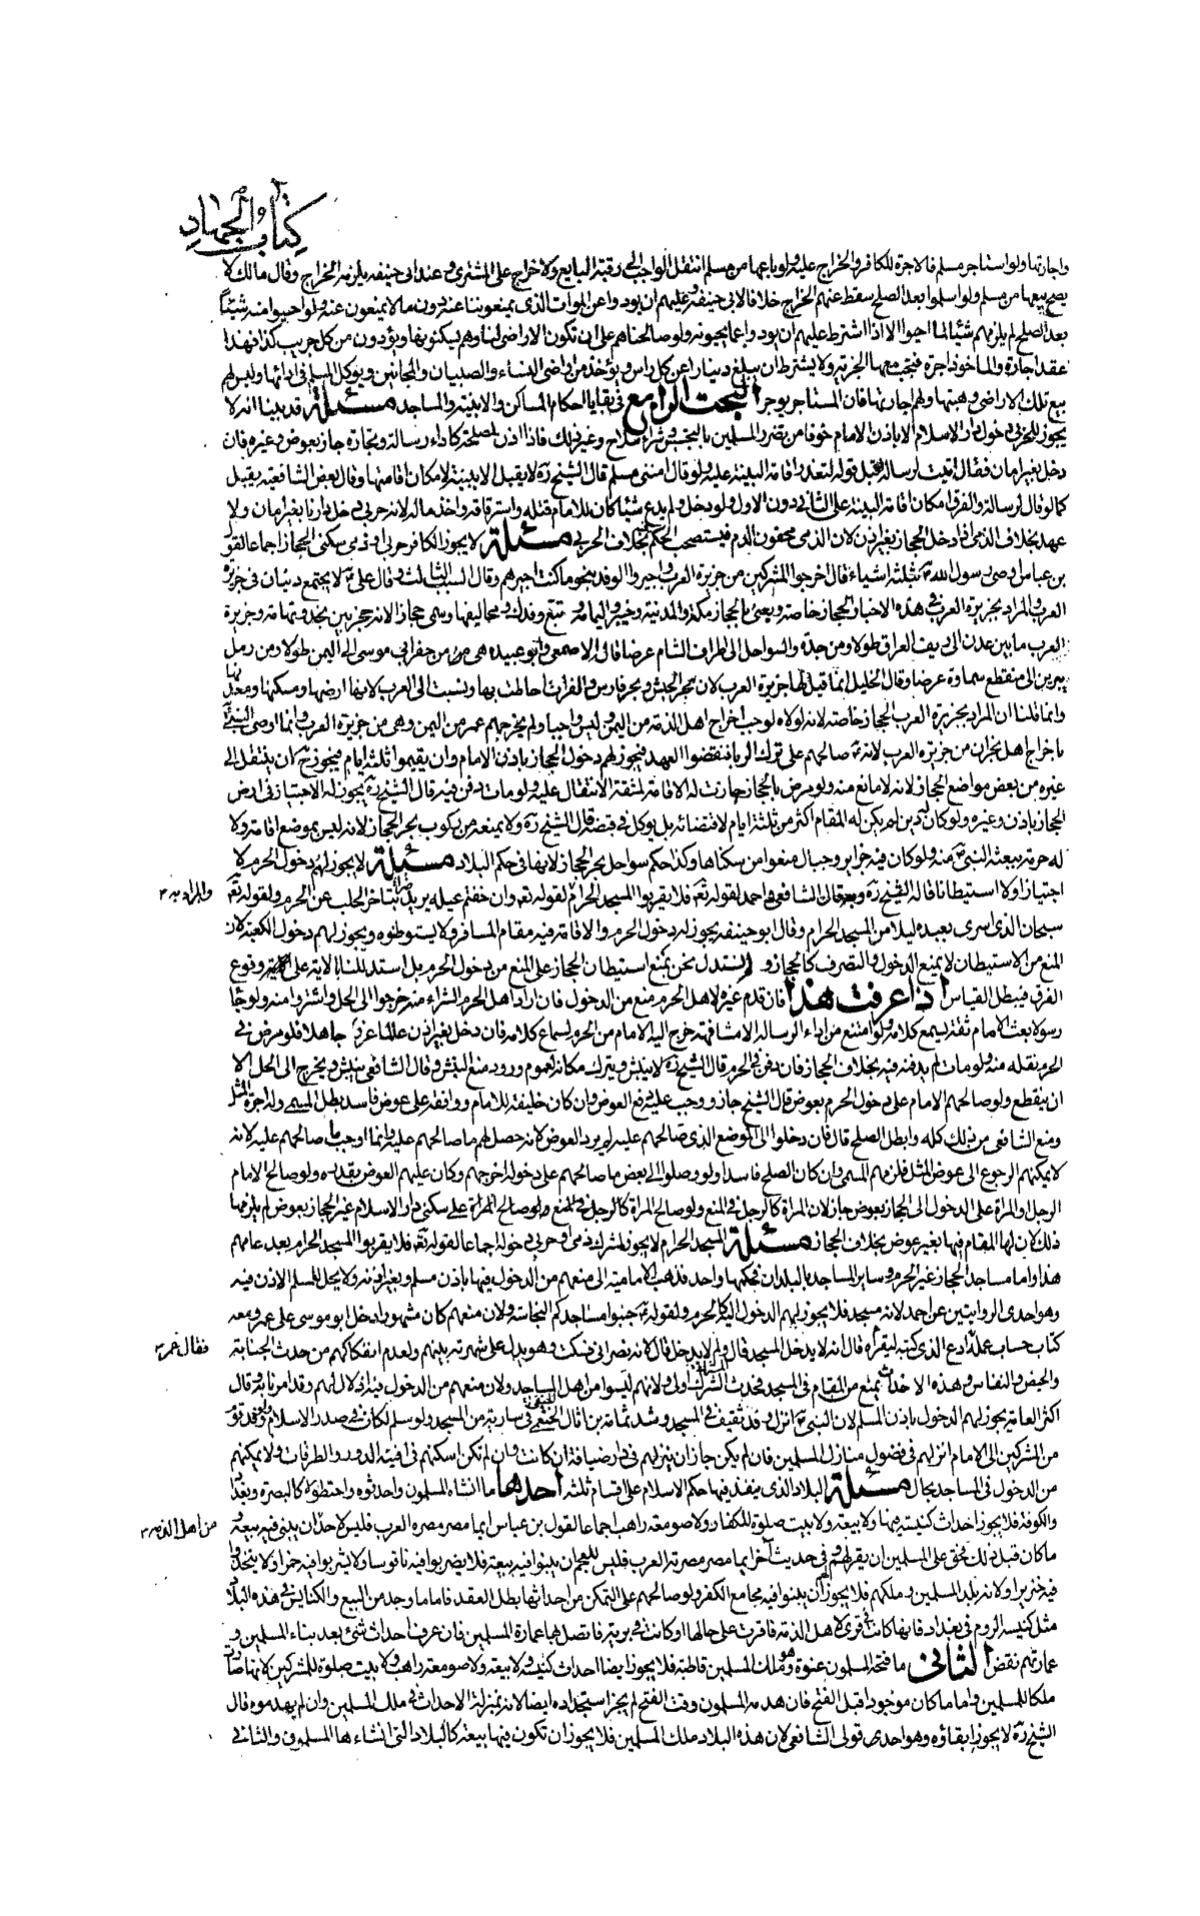 كتاب الجهاد
واجارتها ولو استاجر مسلم فالاجرة للكافر والخراج عليه ولو باعها من مسلم انتقل الواجب الى رقبة البايع ولا خراج على المشترى وعند ابى حنيفه يلزمه الخراج وقال مالك لا
يصح بيعها من مسلم ولو اسلموا بعد الصلح سقط عنهم الخراج خلافا لابى حنيفه وعليهم ان يذودوا عن الموات الذى يمنعوننا عنه دون ما لا يمنعون عنه ولو احيوا منه شيئا
بعد الصلح لم يلزمهم شئ لما احيوا الا اذا اشترط عليهم ان يؤدوا عما يحيونه ولو صالحناهم على ان تكون الاراضى لنا وهم يسكنونها ويؤدون من كل جريب كذا فهذا
عقد اجارة والماخوذ اجرة فيجب معها الجزية ولا يشترط ان يبلغ دينارا عن كل راس ويؤخذ من اراضى النساء والصبيان والمجانين ويوكل المسلم فى ادائها وليس لهم
بيع تلك الاراضى وهبتها ولهم اجارتها فان المستاجر يوجر البحث الرابع فى بقايا احكام المساكن والابنية والمساجد مسئلة قد بينا انه لا
يجوز للحربى دخول دار الاسلام الا باذن الامام خوفا من تضرر المسلمين بالتجسس وشراء سلاح وغير ذلك فاذا اذن لمصلحة كاداء رسالة وتجارة جاز بعوض وغيره فان
دخل بغير امان فقال اتيت لرسالة قبل قوله لتعذر اقامة البينة عليه ولو قال امننى مسلم قال الشيخ ره لا يقبل الا ببينة لامكان اقامتها وقال بعض الشافعية يقبل
كما لو قال لرسالة والفرق امكان اقامة البينة على الثانى دون الاول ولو دخل ولم يدع شيئا كان للامام قتله واسترقاقه واخذ ماله لانه حربى دخل دارنا بغير امان ولا
عهد بخلاف الذمى اذا دخل الحجاز بغير اذن لان الذمى محقون الدم فيستصحب الحكم بخلاف الحربى مسئلة لا يجوز لكافر حربى او ذمى سكنى الحجاز اجماعا لقول
بن عباس اوصى رسول الله ص بثلثة اشياء قال اخرجوا المشركين من جزيرة العرب واجيزوا الوفد بنحو ما كنت اجيزهم وقال السبب الثالث وقال على ع لا يجتمع دينان فى جزيرة
العرب والمراد بجزيرة العرب فى هذه الاخبار الحجاز خاصة ويعنى بالحجاز مكة والمدينة وخيبر واليمامة وينبع وفدك ومخاليفها وسمى حجازا لانه حجز بين نجد وتهامة وجزيرة
العرب ما بين عدن الى ريف العراق طولا ومن جدة والسواحل الى اطراف الشام عرضا قاله الاصمعى وابو عبيده هى من حفر ابى موسى الى اليمن طولا ومن رمل
يبرين الى منقطع سماوة عرضا وقال الخليل انما قيل لها جزيرة العرب لان بحر الحبش وبحر فارس والفرات احاطت بها ونسبت الى العرب لانها ارضها ومسكنها ومعدنها
وانما قلنا ان المراد بجزيرة العرب الحجاز خاصة لانه لولاه لوجب اخراج اهل الذمة من اليمن وليس واجبا ولم يخرجهم عمر من اليمن وهى من جزيرة العرب وانما اوصى النبى ص
باخراج اهل نجران من جزيرة العرب لانه ع صالحهم على ترك الربا فنقضوا العهد فيجوز لهم دخول الحجاز باذن الامام وان يقيموا ثلثة ايام فيجوز ح ان ينتقل الى
غيره من بعض مواضع الحجاز لانه لا مانع منه ولو مرض بالحجاز جازت له الاقامة لمشقة الانتقال عليه ولو مات دفن فيه قال الشيخ ره يجوز له الاجتياز فى ارض
الحجاز باذن وغيره ولو كان له دين لم يكن له المقام اكثر من ثلثة ايام لاقتضائه بل يوكل فى قبضه قال الشيخ ره ولا يمنعه من ركوب بحر الحجاز لانه ليس بموضع اقامة ولا
له حرمة ببعثة النبى ص منه ولو كان فيه جزاير وجبال منعوا من سكناها وكذا حكم سواحل بحر الحجاز لانها فى حكم البلاد مسئلة لا يجوز لهم دخول الحرم لا
اجتيازا ولا استيطانا قاله الشيخ ره وبه قال الشافعى واحمد لقوله تع فلا يقربوا المسجد الحرام لقوله تع وان خفتم عيلة يريد بتاخر الجلب عن الحرم ولقوله تع
والمراد به
سبحان الذى اسرى بعبده ليلا من المسجد الحرام وقال ابو حنيفه يجوز له دخول الحرم والاقامة فيه مقام المسافر ولا يستوطنوه ويجوز لهم دخول الكعبة لان
المنع من الاستيطان لا يمنع الدخول والتصرف كالحجاز ولم نستدل نحن بمنع استيطان الحجاز على المنع من دخول الحرم بل استدللنا بالاية على وقوع
الفرق فيبطل القياس اذا عرفت هذا فان قدم غيره لاهل الحرم منع من الدخول فان اراد اهل الحرم الشراء منه خرجوا الى الحل واشتروا منه ولو جاء
رسولا بعث الامام ثقة يسمع كلامه ولو امتنع من اداء الرسالة الا مشافهة خرج اليه الامام من الحرم لسماع كلامه فان دخل بغير اذن عالما عزر لا جاهلا فلو مرض فى
الحرم نقله منه ولو مات لم يدفنه فيه بخلاف الحجاز فان دفن فى الحرم قال الشيخ ره لا ينبش ويترك مكانه لعموم ورود منع النبش وقال الشافعى ينبش ويخرج الى الحل الا
ان يتقطع ولو صالحهم الامام على دخول الحرم بعوض قال الشيخ جاز ووجب عليه دفع العوض وان كان خليفة للامام ووافقه على عوض فاسد بطل المسمى وله اجرة المثل
ومنع الشافعى من ذلك كله وابطل الصلح قال فان دخلوا الى الموضع الذى صالحهم عليه لم يرد العوض لانه حصل لهم ما صالحهم عليه وانما اوجب ما صالحهم عليه لانه
لا يمكنهم الرجوع الى عوض المثل فلزمهم المسمى وان كان الصلح فاسدا ولو وصلوا الى بعض ما صالحهم على دخوله اخرجهم وكان عليهم العوض بقدره ولو صالح الامام
الرجل والمراة على الدخول الى الحجاز بعوض جاز لان المراة كالرجل فى المنع ولو صالح المراة على سكنى دار الاسلام غير الحجاز بعوض لم يلزمها
ذلك لان لها المقام فيها بغير عوض بخلاف الحجاز مسئلة المسجد الحرام لا يجوز لمشرك ذمى او حربى دخوله اجماعا لقوله تع فلا يقربوا المسجد الحرام بعد عامهم
هذا واما مساجد الحجاز غير الحرم وساير المساجد بالبلدان فحكمها واحد فذهب الامامية الى منعهم من الدخول فيها باذن مسلم وبغير اذنه ولا يحل للمسلم الاذن فيه
وهو احدى الروايتين عن احمد لانه مسجد فلا يجوز لهم الدخول اليه كالحرم ولقوله ع جنبوا مساجدكم النجاسة ولان منعهم كان مشهورا دخل ابو موسى على عمر ومعه
كتاب حساب عمله فقال ادع الذى كتبه ليقرأه قال انه لا يدخل المسجد قال ولم لا يدخل قال لانه نصرانى فسكت وهو يدل على شهرته بينهم ولعدم انفكاكهم من حدث الجنابة
فقال عمر
والحيض والنفاس وهذه الاحداث تمنع من المقام فى المسجد فحدث الشرك اولى ولانهم ليسوا من اهل المساجد ولان منعهم من الدخول فيه اذلال لهم وقد امرنا به وقال
اكثر العامة يجوز لهم الدخول باذن المسلم لان النبى ص انزل وفد ثقيف فى المسجد وشد ثمامة بن اثال الحنفى فى سارية من المسجد ولو سلم لكان فى صدر الاسلام ولو قدم وفد
من المشركين الى الامام انزلهم فى فضول منازل المسلمين فان لم يكن جاز ان ينزلهم فى دار ضيافة ان كانت وان لم تكن اسكنهم فى افنية الدور والطرقات ولا يمكنهم
من الدخول فى المساجد بحال مسئلة البلاد الذى ينفذ فيها حكم الاسلام على اقسام ثلثه احدها ما انشاه المسلمون واحدثوه واختطوه كالبصرة وبغداد
والكوفة فلا يجوز احداث كنيسة فيها ولا بيعة ولا بيت صلوة للكفار ولا صومعة راهب اجماعا لقول بن عباس ايما مصر مصره العرب فليس لاحد ان يبنى فيه بيعة و
من اهل الذمه
ما كان قبل ذلك فحق على المسلمين ان يقر لهم وفى حديث آخر ايما مصر مصرته العرب فليس للعجم ان يبنوا فيه بيعة فلا يضربوا فيه ناقوسا ولا يشربوا فيه خمرا ولا يتخذوا
فيه خنزيرا ولانه بلد المسلمين وملكهم فلا يجوز ان يبنوا فيه مجامع الكفر ولو صالحهم على التمكن من احداثها بطل العقد فاما ما وجد من البيع والكنايس فى هذه البلاد
مثل كنيسة الروم فى بغداد فانها كانت فى قرى لاهل الذمة فاقرت على حالها او كانت فى برية فاتصل بها عمارة المسلمين فان عرف احداث شئ بعد بناء المسلمين و
عمارتهم نقض الثانى ما فتحه المسلمون عنوة فهو ملك للمسلمين قاطبة فلا يجوز ايضا احداث كنيسة ولا بيعة ولا صومعة راهب ولا بيت صلوة للمشركين لانها صارت
ملكا للمسلمين واما ما كان موجودا قبل الفتح فان هدمه المسلمون وقت الفتح لم يجز استجداده ايضا لانه بمنزلة الاحداث فى ملك المسلمين وان لم يهدموه قال
الشيخ ره لا يجوز ابقاؤه وهو احدى قولى الشافعى لان هذه البلاد ملك المسلمين فلا يجوز ان تكون فيها بيعة كالبلاد التى انشاءها المسلمون والثانى